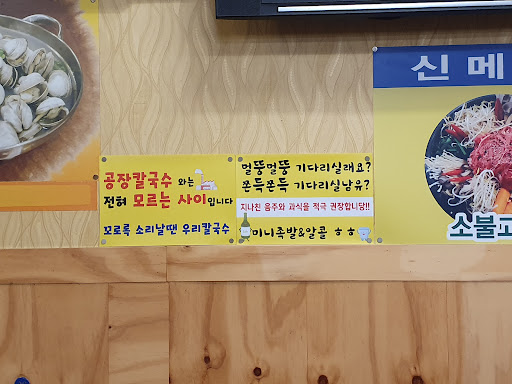 공장칼국수 와는
전혀 모르는 사이입니다
꼬로록 소리날땐 우리칼국수
멀뚱멀뚱 기다리실래요?
쫀득쫀득 기다리실남유?
지나친 음주와 과식을 적극 권장합니당!!
미니족발&알콜 ㅎㅎ
신메
소불고